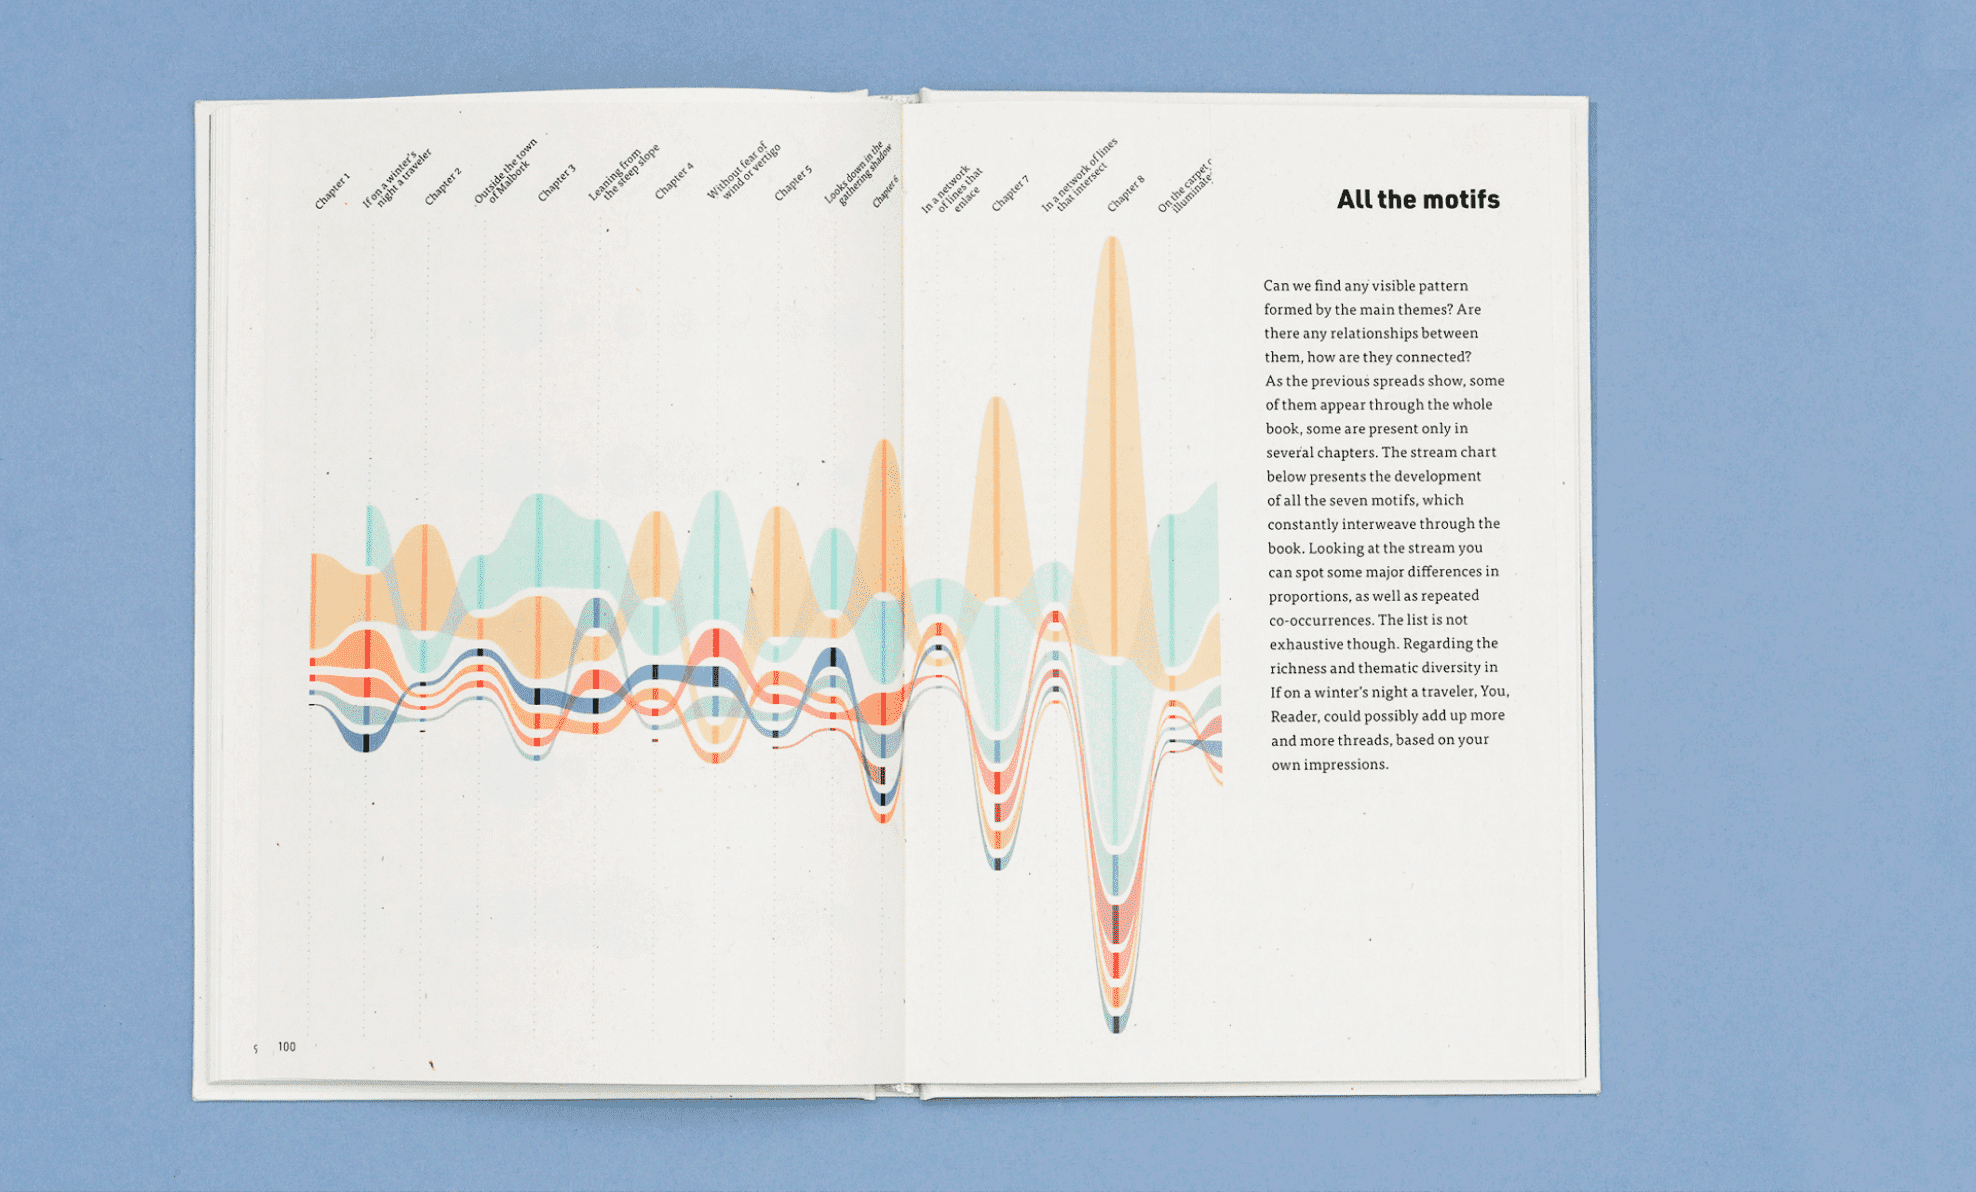 Chapter 1
If on a winter's
night a traveler
Chapter 2
Outside the town
of Malbork
Chapter 3
Leaning from
the steep slope
Chapter 4
Without fear of
wind or vertigo
Chapter 5
Looks down in the
gathering shadow
Chapter 6
In a network
of lines that
enlace
Chapter 7
In a network of lines
that intersect
Chapter 8
On the carpet
All the motifs
Can we find any visible pattern
formed by the main themes? Are
there any relationships between
them, how are they connected?
As the previous spreads show, some
of them appear through the whole
book, some are present only in
several chapters. The stream chart
below presents the development
of all the seven motifs, which
constantly interweave through the
book. Looking at the stream you
can spot some major differences in
proportions, as well as repeated
co-occurrences. The list is not
exhaustive though. Regarding the
richness and thematic diversity in
If on a winter's night a traveler, You,
Reader, could possibly add up more
and more threads, based on your
own impressions.
100